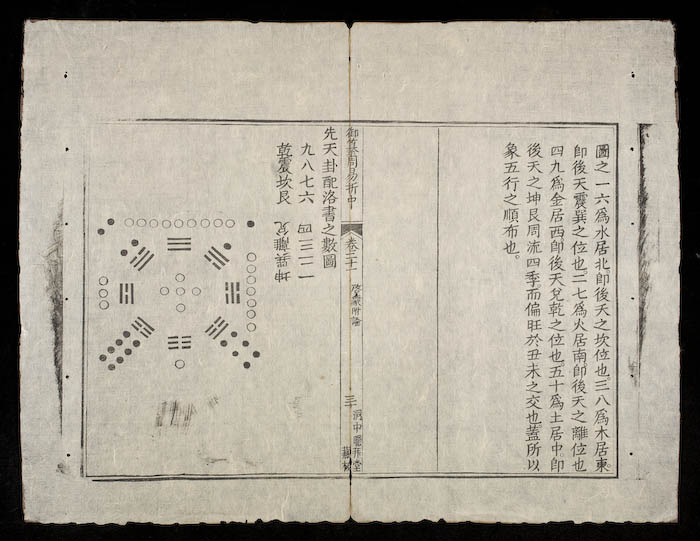 圖之一六爲水居北卽後天之坎位也三八爲木居東
卽後天震巽之位也二七爲火居南卽後天之離位也
四九爲金居西卽後天兌乾之位也五十爲土居中卽
後天之坤艮周流四季而偏旺於丑未之交也蓋所以
象五行之順布也。
御纂周易折中
卷二十一
啓蒙附論
三
先天卦配洛書之數圖
九八七六 四三二一
乾震坎艮 兌離巽坤